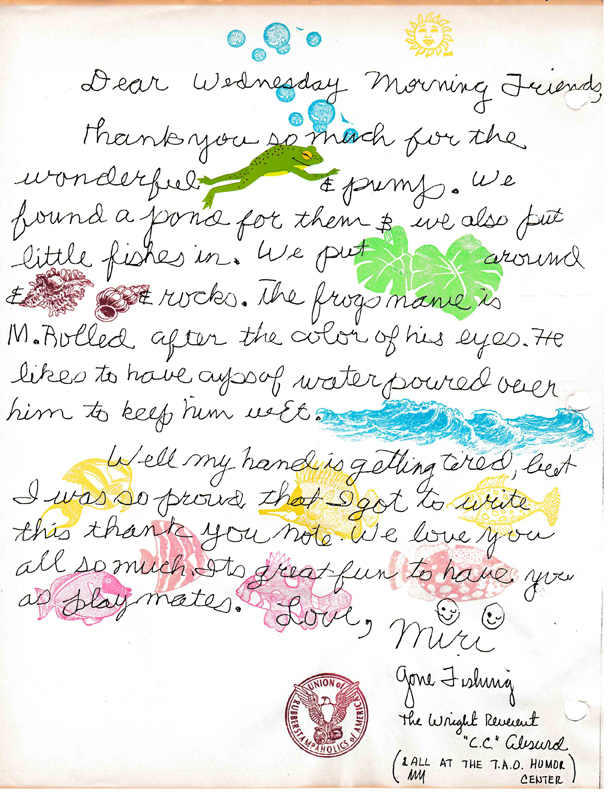 Dear Wednesday Morning Friends,
Thank you so much for the
wonderful & pump. We
found a pond for them & we also put
little fishes in. We put around
& & rocks. The frogs name is
M. Rolled after the color of his eyes. He
likes to have cups of water poured over
him to keep him wet.
Well my hand is getting tired, but
I was so proud that I got to write
this thank you note. We love you
all so much. Its great fun to have you
as play mates. Love,
Miri
Gone Fishing
The Wright Reverent
"C.C" Absurd
(& ALL AT THE T.A.O. HUMOR
CENTER)
UNION of
RUBBERSTAMPAHOLICS of AMERICA